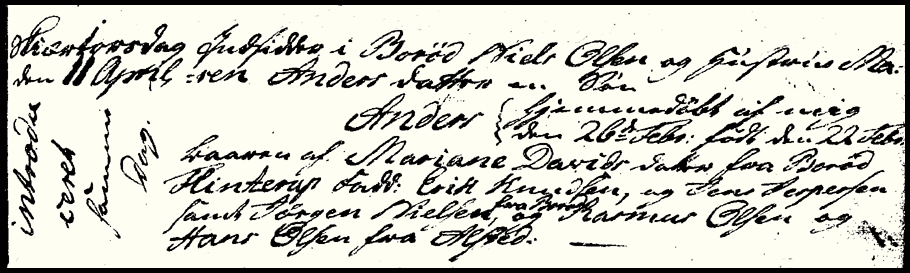 Skiærtorsdag Indsidder i Borød Niels Olsen og Hustrue Ma:
den 11 April, :ren Anders datter en Søn
Anders { hjemmedöbt af mig
den 26de Febr. födt den 22 Febr.
baaren af Mariane Davids dater fra Borød
Hinterup Fadd: Erik Knudsen, og Jens Jespersen
samt Jørgen Nielsen, fra Borød og Rasmus Olsen og
Hans Olsen fra Alsted:
introdu
ceret
samme
Dag.